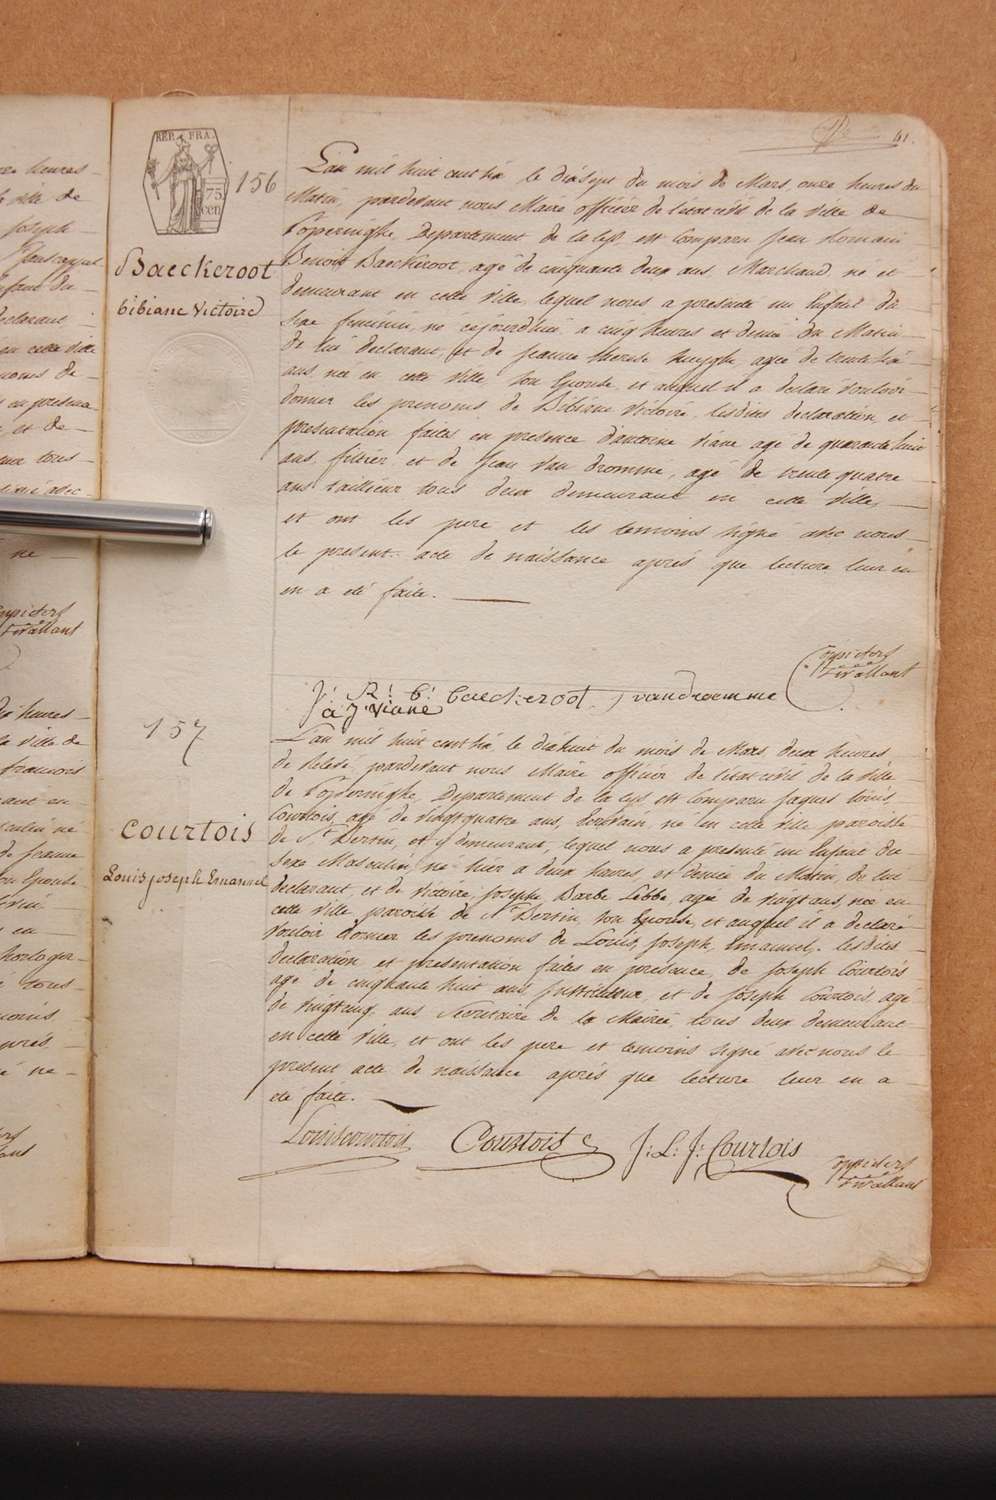 61.
REP. FRA.
75
cen
156
Baeckeroot
bibiane Victoire
L'an mil huit cent six le dixsept du mois de Mars, onze heures du
Matin, pardevant nous Maire officier de l'état civil de la Ville de
Poperinghe, Departement de la Lys, est comparu Jean Romain
Benoit Baeckeroot, agé de cinquante deux ans, Marchand, né et
demeurant en cette Ville, lequel nous a presenté un Enfant du
sexe feminin, né cejourdhui a cinq heures et demie du Matin
de lui declarant et de Jeanne therese huyghe agée de trente six
ans, née en cette Ville, son Epouse, et auquel il a declaré vouloir
donner les prenoms de Bibiane Victoire, lesdites declaration et
presentation faites en presence d'antoine Viane agé de quarante huit
ans, fillier, et de Jean Van Dromme, agé de trente quatre
ans tailleur tous deux demeurant en cette Ville,
et ont les pere et les temoins signé avec nous
le present acte de naissance aprés que lecture leur en
en a été faite.
J: R: b: baeckeroot J vandromme
a J: viane
157
courtois
Louis joseph Emanuel
L'an mil huit cent six, le dixhuit du mois de Mars deux heures
de relevé, pardevant nous Maire officier de l'état civil de la ville
de Poperinghe, Departement de la Lys est comparu Jaques Louis
Courtois, agé de vingt quatre ans, Ecrivain, né en cette ville paroisse
de St Bertin, et y demeurant, lequel nous a presenté un Enfant du
sexe Masculin, né hier a deux heures, et demie du Matin, de lui
declarant, et de Victoire Josephe Barbe Lebbe, agée de vingt ans, née en
cette ville paroisse de St Bertin, son Epouse, et auquel il a declaré
vouloir donner les prenoms de Louis, Joseph, Emanuel, lesdites
declaration et presentation faites en presence, de Joseph Courtois
agé de cinquante huit ans, Instituteur, et de Joseph Courtois, agé
de vingtcinq ans Secretaire de la Mairie, tous deux demeurant
en cette Ville, et ont les pere et temoins signé avec nous le
present acte de naissance aprés que lecture leur en a
été faite.
Louis courtois Courtois J: L: J: Courtois